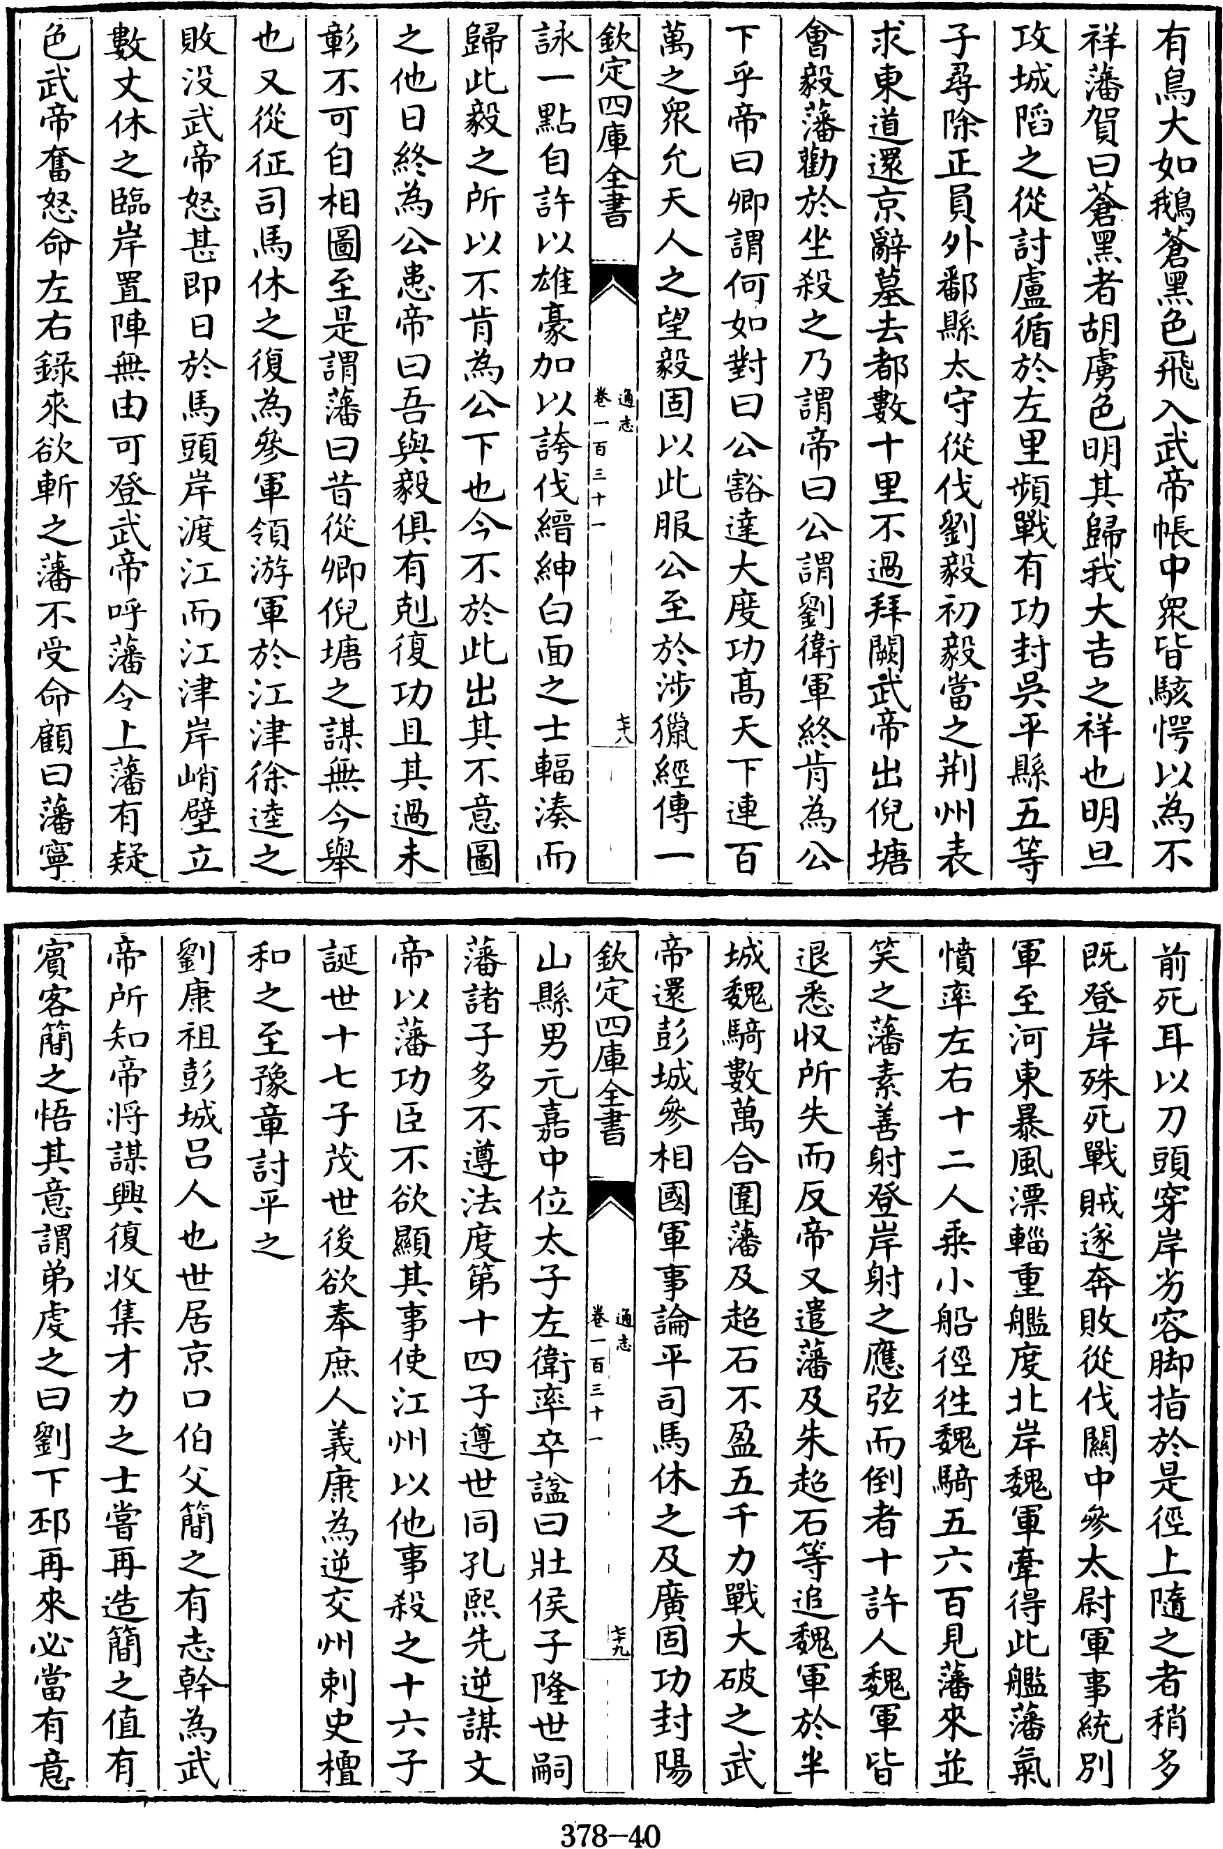 有鳥大如鵝蒼黑色飛入武帝帳中衆皆駭愕以為不
祥藩賀曰蒼黑者胡虜色明其歸我大吉之祥也明旦
攻城陷之從討盧循於左里頻戰有功封吳平縣五等
子尋除正員外鄱縣太守從伐劉毅初毅當之荆州表
求東道還京辭墓去都數十里不過拜闕武帝出倪塘
會毅藩勸於坐殺之乃謂帝曰公謂劉衛軍終肯為公
下乎帝曰卿謂何如對曰公豁達大度功髙天下連百
萬之衆允天人之望毅固以此服公至於涉獵經傳一
欽定四庫全書
通志
卷一百三十一
七十八
詠一點自許以雄豪加以誇伐縉紳白面之士輻湊而
歸此毅之所以不肯為公下也今不於此出其不意圖
之他日終為公患帝曰吾與毅俱有剋復功且其過未
彰不可自相圖至是謂藩曰昔從卿倪塘之謀無今舉
也又從征司馬休之復為參軍領游軍於江津徐逵之
敗没武帝怒甚即日於馬頭岸渡江而江津岸峭壁立
數丈休之臨岸置陣無由可登武帝呼藩令上藩有疑
色武帝奮怒命左右錄來欲斬之藩不受命顧曰藩寧
前死耳以刀頭穿岸劣容脚指於是徑上隨之者稍多
既登岸殊死戰賊遂奔敗從伐關中參太尉軍事統别
軍至河東暴風漂輜重艦度北岸魏軍牽得此艦藩氣
憤率左右十二人乘小船徑徃魏騎五六百見藩來並
笑之藩素善射登岸射之應弦而倒者十許人魏軍皆
退悉收所失而反帝又遣藩及朱超石等追魏軍於半
城魏騎數萬合圍藩及超石不盈五千力戰大破之武
帝還彭城參相國軍事論平司馬休之及廣固功封陽
欽定四庫全書
通志
卷一百三十一
七十九
山縣男元嘉中位太子左衛率卒諡曰壯侯子隆世嗣
藩諸子多不遵法度第十四子遵世同孔熙先逆謀文
帝以藩功臣不欲顯其事使江州以他事殺之十六子
誕世十七子茂世後欲奉庶人義康為逆交州刺史檀
和之至豫章討平之
劉康祖彭城吕人也世居京口伯父簡之有志幹為武
帝所知帝將謀興復收集才力之士嘗再造簡之值有
賓客簡之悟其意謂弟虔之曰劉下邳再來必當有意
378-40